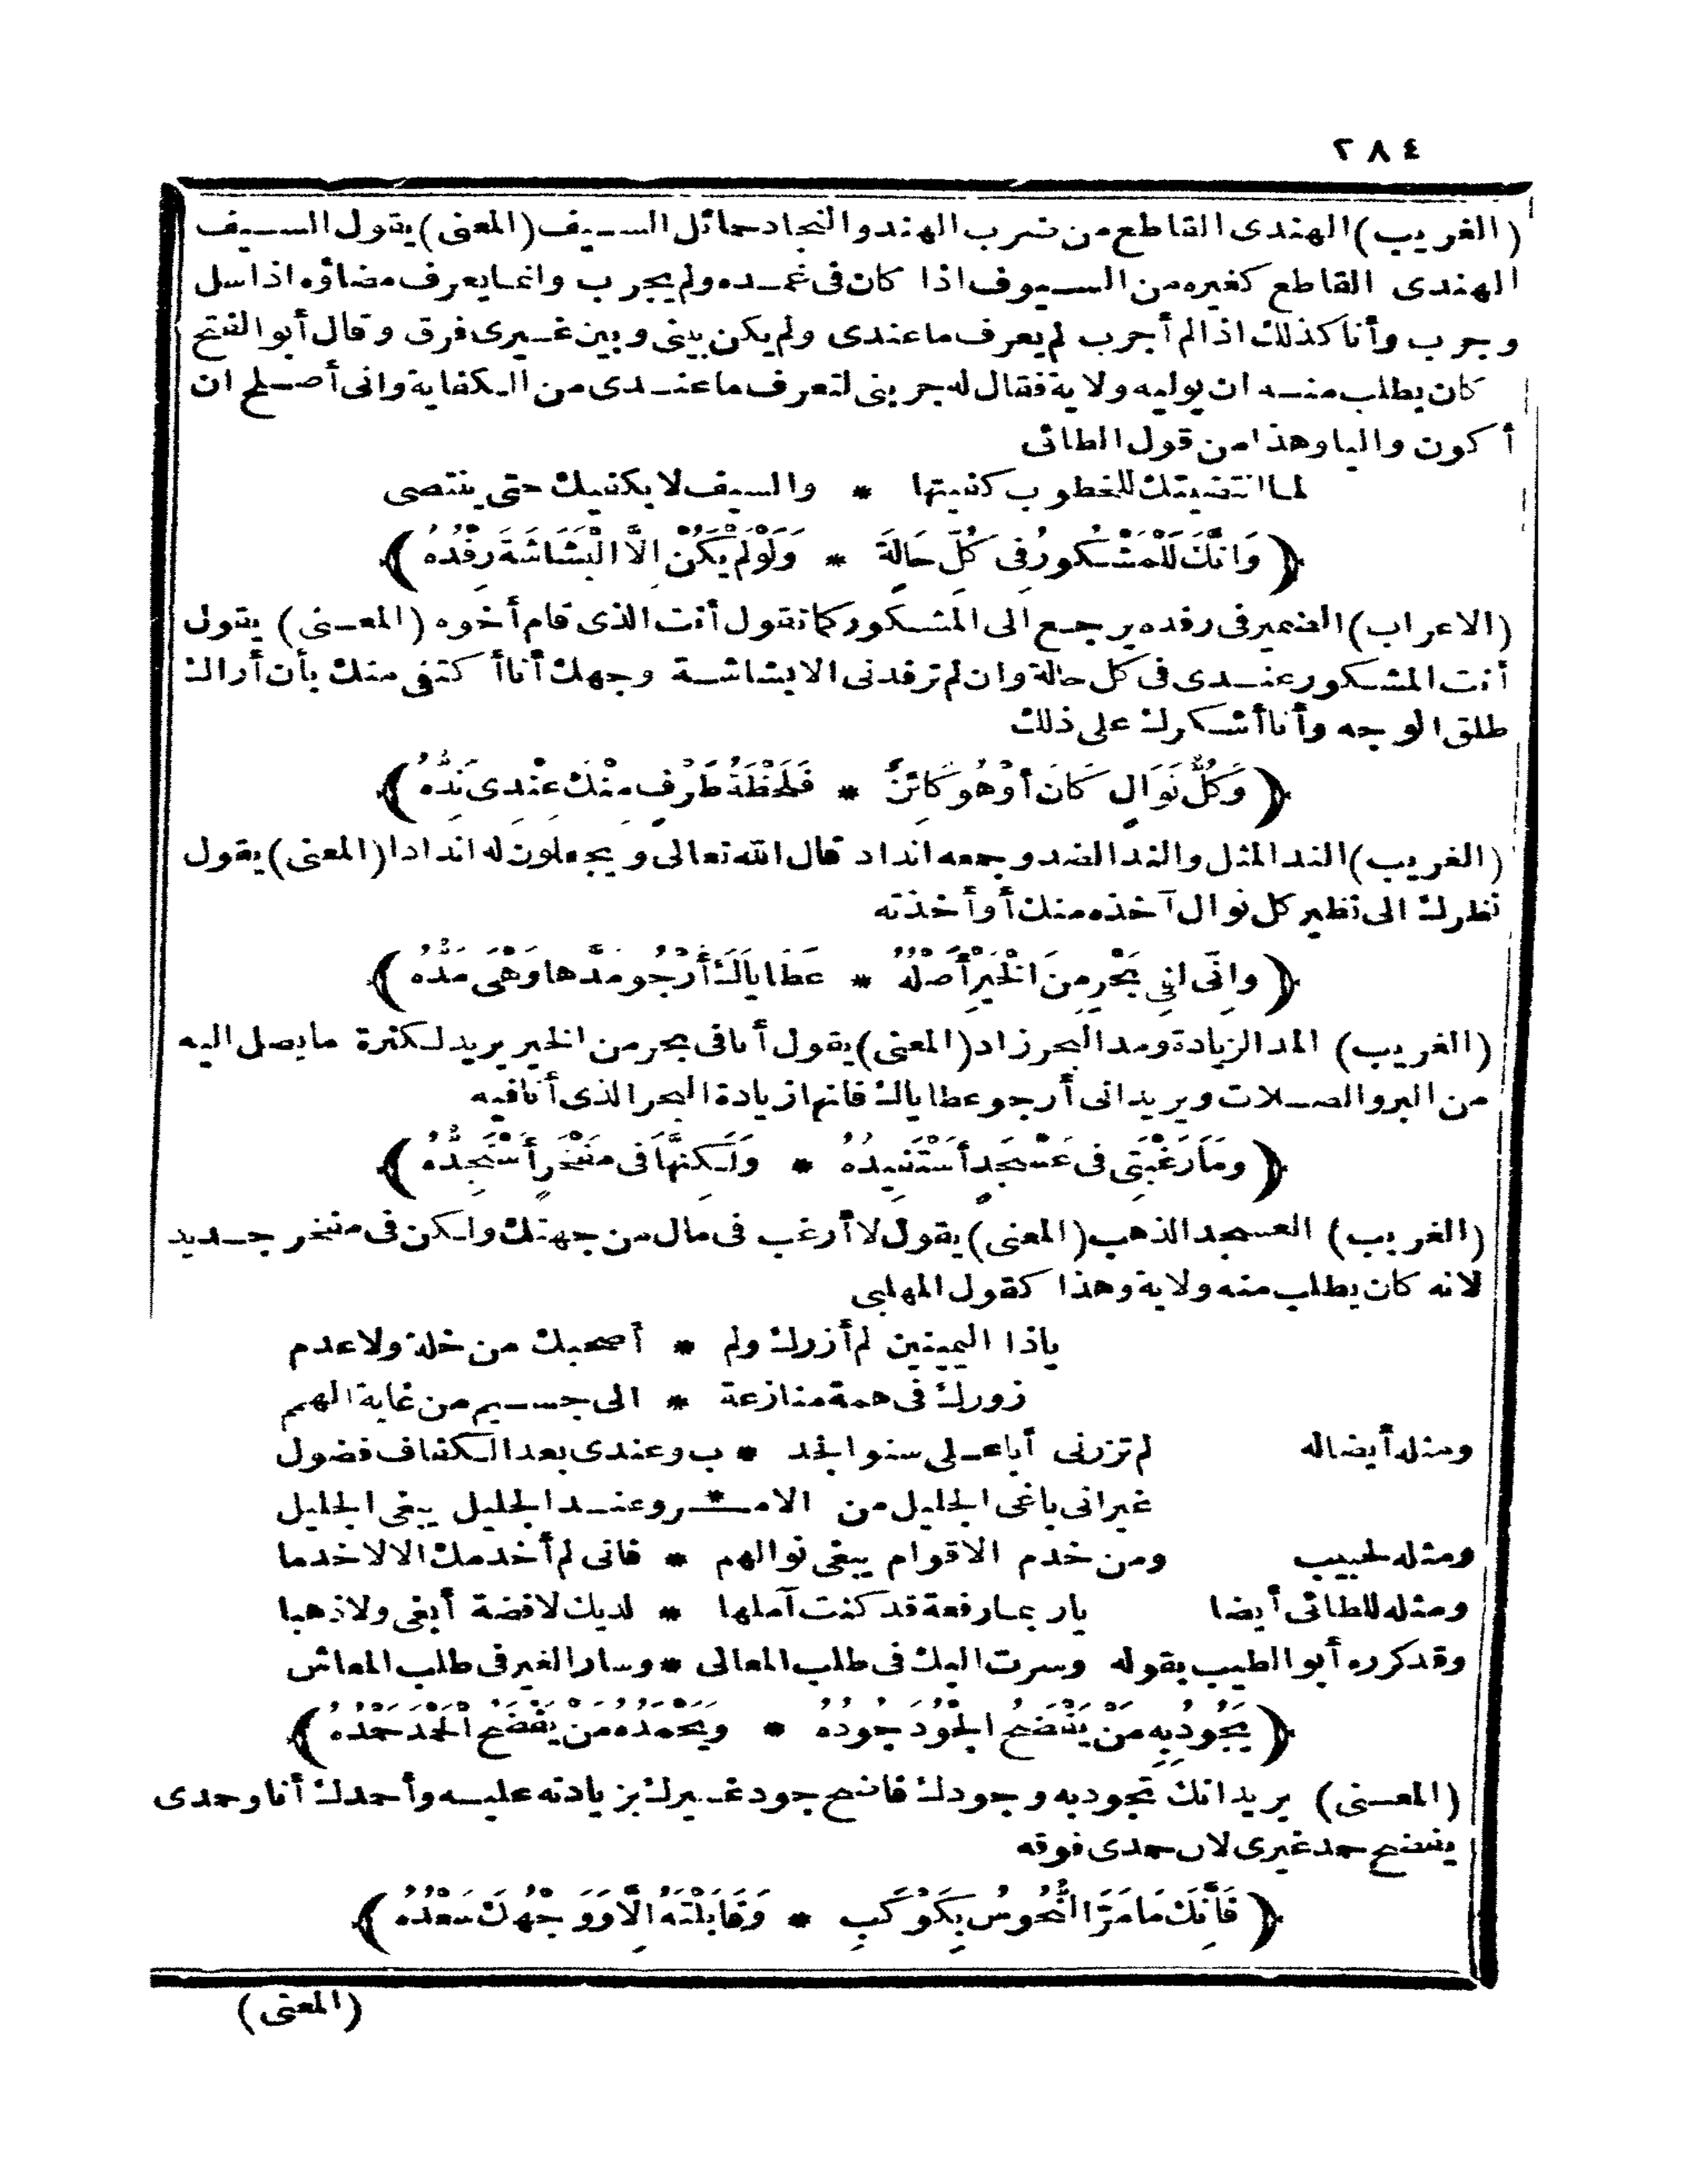 ٢٨٤
(الغريب) الهندى القاطع من ضرب الهند والنجاد حمائل السيف (المعنى) يقول السيف
الهندى القاطع كغيره من السيوف اذا كان فى غمده ولم يجرب وانما يعرف مضاؤه اذا سل
وجرب وأنا كذلك اذا لم أجرب لم يعرف ما عندى ولم يكن بينى وبين غيرى فرق وقال أبو الفتح
كان يطلب منه ان يوليه ولاية فقال له جربنى لتعرف ما عندى من الكفاية وانى أصلح ان
أكون واليا وهذا من قول الطائى
لما انتضيتك للخطوب كفيتها * والسيف لا يكفيك حتى ينتضى
﴿ وَانَّكَ لَلْمَشْكُورُ فِى كُلِّ حَالَةٍ * وَلَوْ لَمْ يَكُنْ اِلَّا الْبَشَاشَةَ رِفْدُهُ ﴾
(الاعراب) الضمير فى رفده يرجع الى المشكور كما تقول أنت الذى قام أخوه (المعنى) يقول
أنت المشكور عندى فى كل حالة وان لم ترفدنى الا بشاشة وجهك أنا أكتفى منك بأن أراك
طلق الوجه وأنا أشكرك على ذلك
﴿ وَكُلُّ نَوَالٍ كَانَ أَوْ هُوَ كَائِنٌ * فَلَحْظَةُ طَرْفٍ مِنْكَ عِنْدِى نِدُّهُ ﴾
(الغريب) الند المثل والند الضد وجمعه انداد قال الله تعالى ويجعلون له اندادا (المعنى) يقول
نظرك الى نظير كل نوال آخذه منك أو أخذته
﴿ وانِّى لفِى بَحْرٍ مِنَ الْخَيْرِ أَصْلُهُ * عَطَايَاكَ أَرْجُو مَدَّها وَهْىَ مَدُّهُ ﴾
(الغريب) المد الزيادة ومد البحر زاد (المعنى) يقول أنا فى بحر من الخير يريد لكثرة ما يصل اليه
من البر والصلات ويريد انى أرجو عطاياك فانها زيادة البحر الذى أنا فيه
﴿ ومَا رَغْبَتِى فى عَسْجَدٍ أَسْتَفِيدُهُ * وَلَكِنَّهَا فى مَفْخَرٍ أَسْتَجِدُّهُ ﴾
(الغريب) العسجد الذهب (المعنى) يقول لا أرغب فى مال من جهتك ولكن فى مفخر جديد
لانه كان يطلب منه ولاية وهذا كقول المهلبى
ياذا اليمينين لم أزرك ولم * أصحبك من خلة ولا عدم
زورك فى همة منازعة * الى جسيم من غاية الهمم
ومثله أيضا له لم تزرنى أبا على سنو الجد * ب وعندى بعد الكفاف فضول
غير انى باغى الجليل من الامــ * ــر وعند الجليل يبغى الجليل
ومثله لحبيب ومن خدم الاقوام يبغى نوالهم * فانى لم أخدمك الا لاخدما
ومثله للطائى أيضا يا ربما رفعة قد كنت آملها * لديك لا فضة أبغى ولا ذهبا
وقد كرره أبو الطيب بقوله وسرت اليك فى طلب المعالى * وسار الغير فى طلب المعاش
﴿ يَجُودُ بِهِ مَنْ يَفْضَحُ الْجُودَ جُودُهُ * وَيَحْمَدُهُ مَنْ يَفْضَحُ الْحَمْدَ حَمْدُهُ ﴾
(المعنى) يريد انك تجود به وجودك فاضح جود غيرك بزيادته عليه وأحمدك أنا وحمدى
يفضح حمد غيرى لان حمدى فوقه
﴿ فَأَنَّكَ مَا مَرَّ النُّحُوسُ بِكَوْكَبٍ * وَقَابَلْتَهُ اِلَّا وَوَجْهُكَ سَعْدُهُ ﴾
(المعنى)